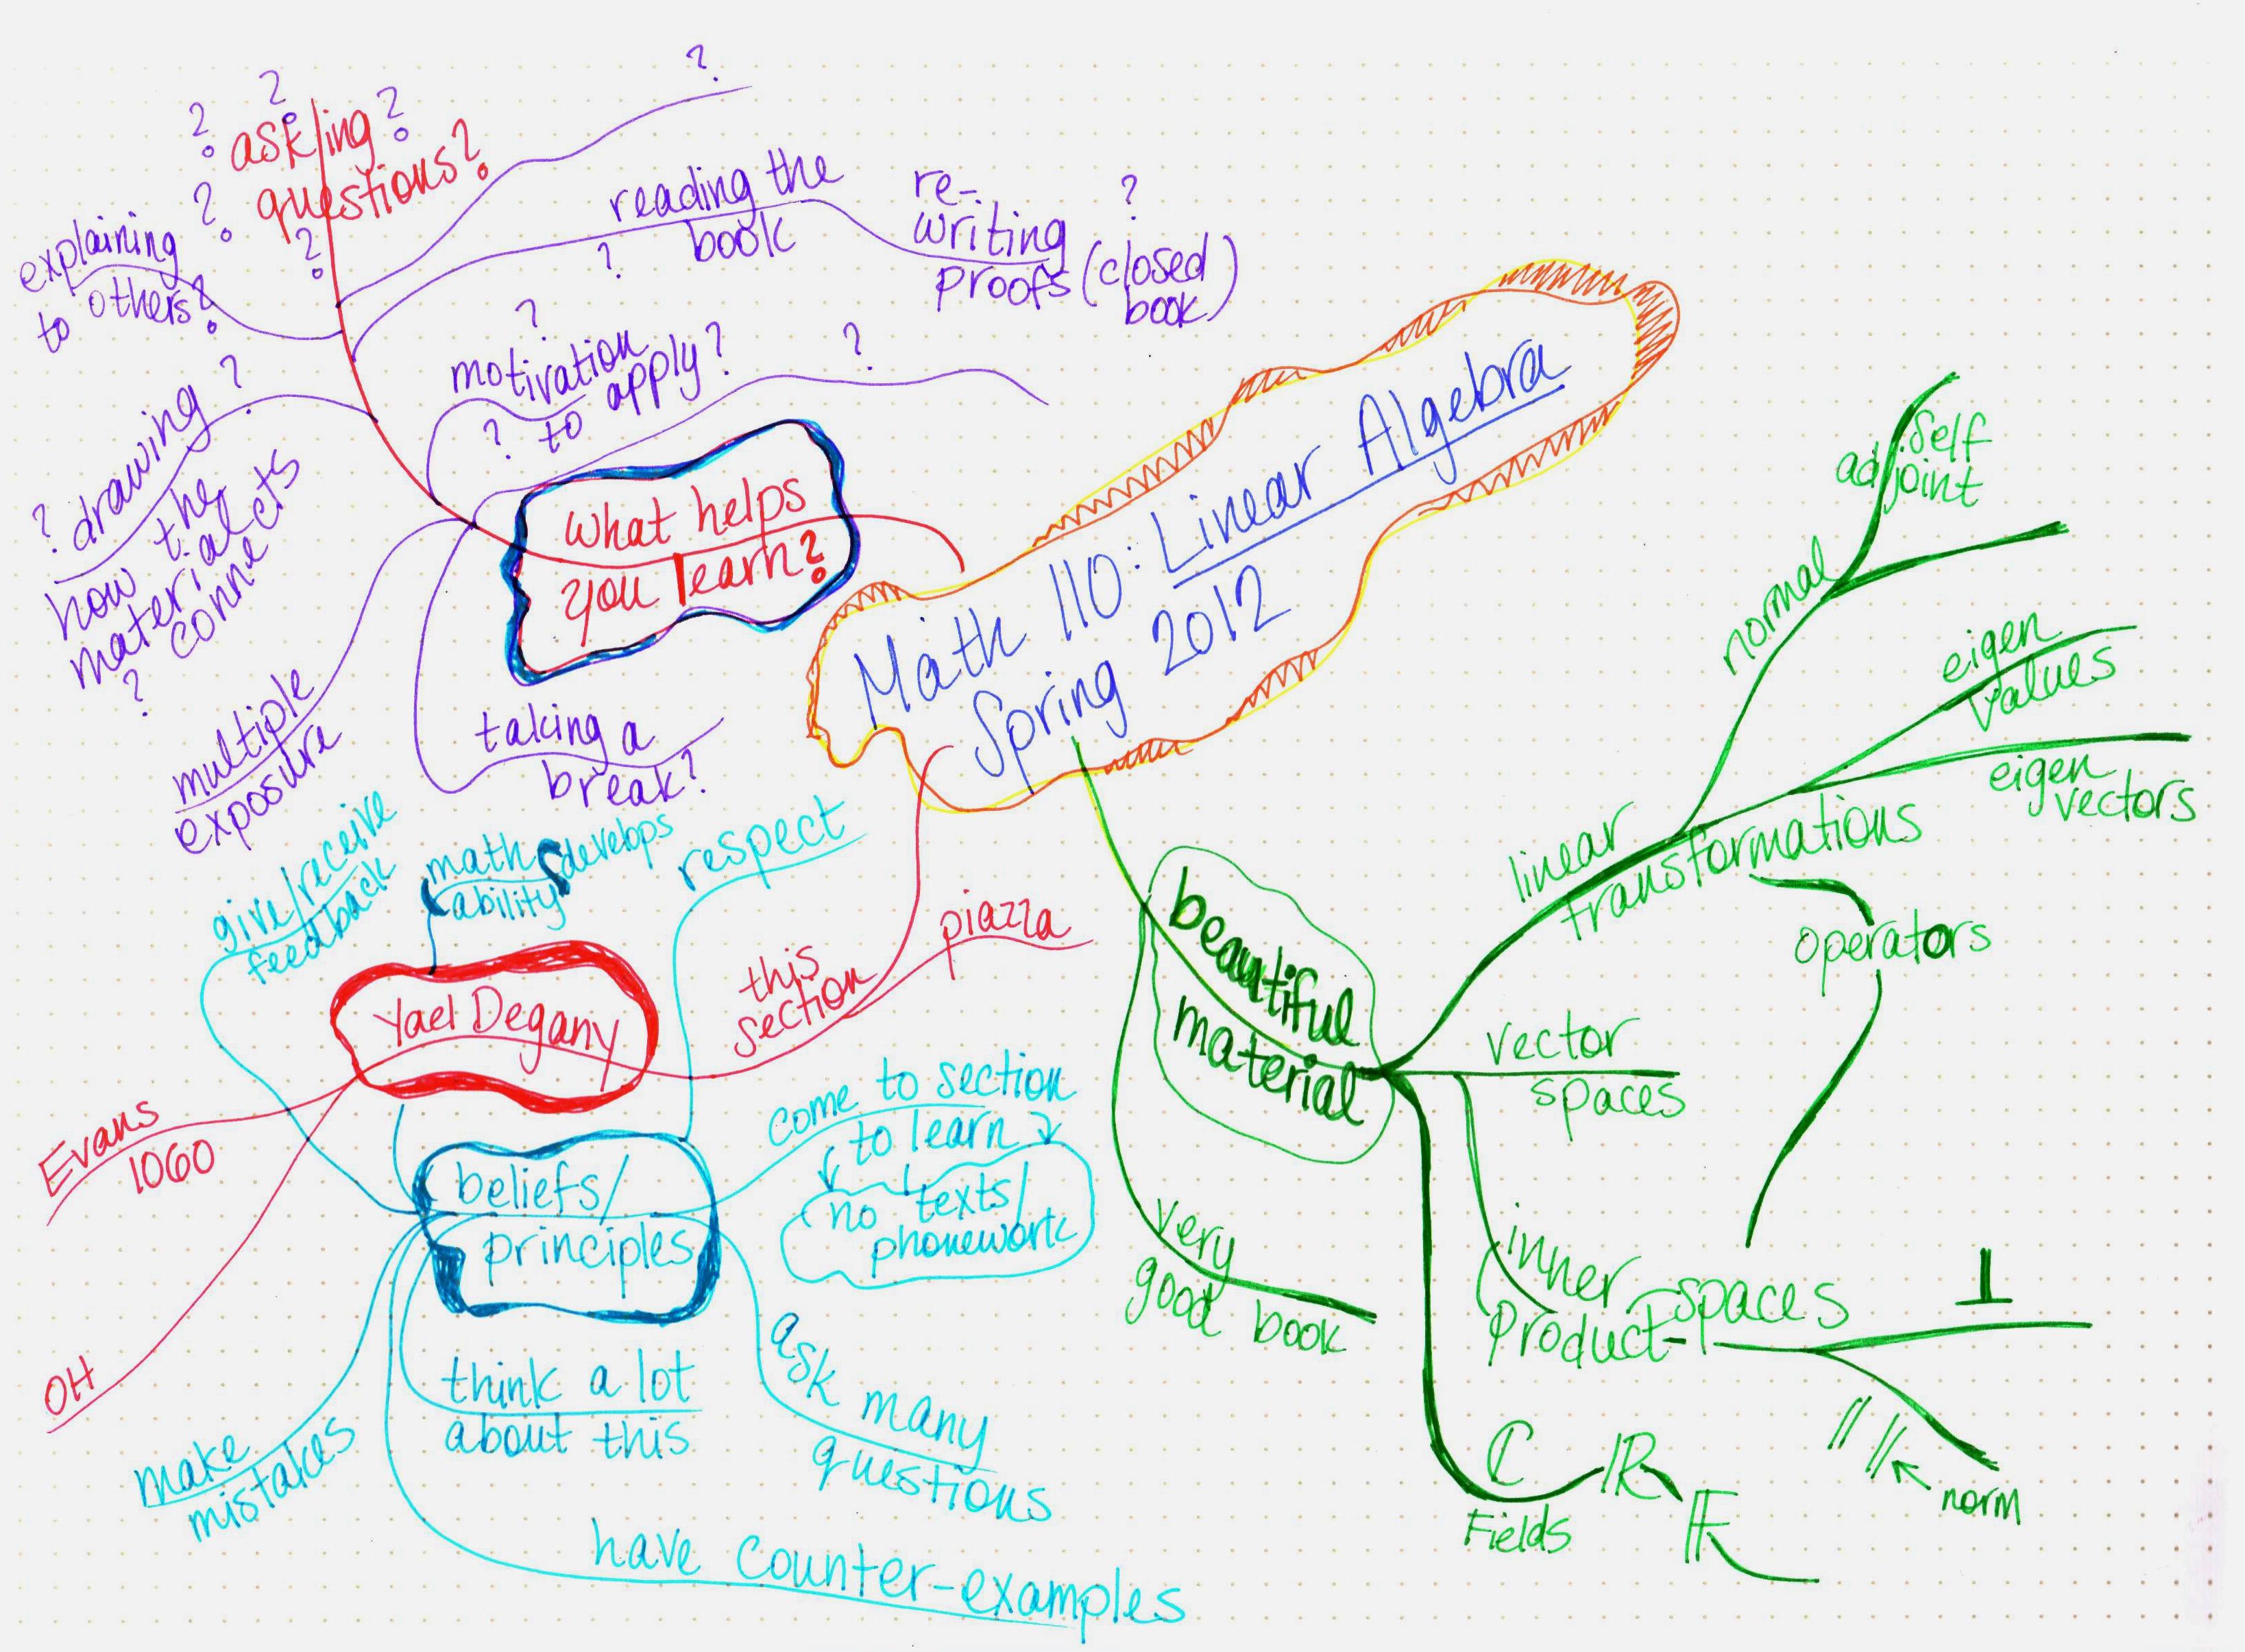 ?
? ? ?
ask/ing
questions?
?
?
explaining
to others?
reading the
book
?
re-
writing
proofs (closed
book)
?
?
motivation
to apply?
?
?
?
? drawing
how the
material
connects
?
multiple
exposure
taking a
break?
What helps
you learn?
Math 110: Linear Algebra
Spring 2012
give/receive
feedback
math develops
ability
respect
Yael Degany
this
section
piazza
Evans
1060
OH
beliefs/
principles
come to section
to learn
no texts/
phonework
ask many
questions
think a lot
about this
make
mistakes
have counter-examples
beautiful
material
very
good book
linear
transformations
normal
self
adjoint
eigen
values
eigen
vectors
operators
vector
spaces
inner
product-spaces
⊥
// //
norm
ℂ ℝ 𝔽
Fields